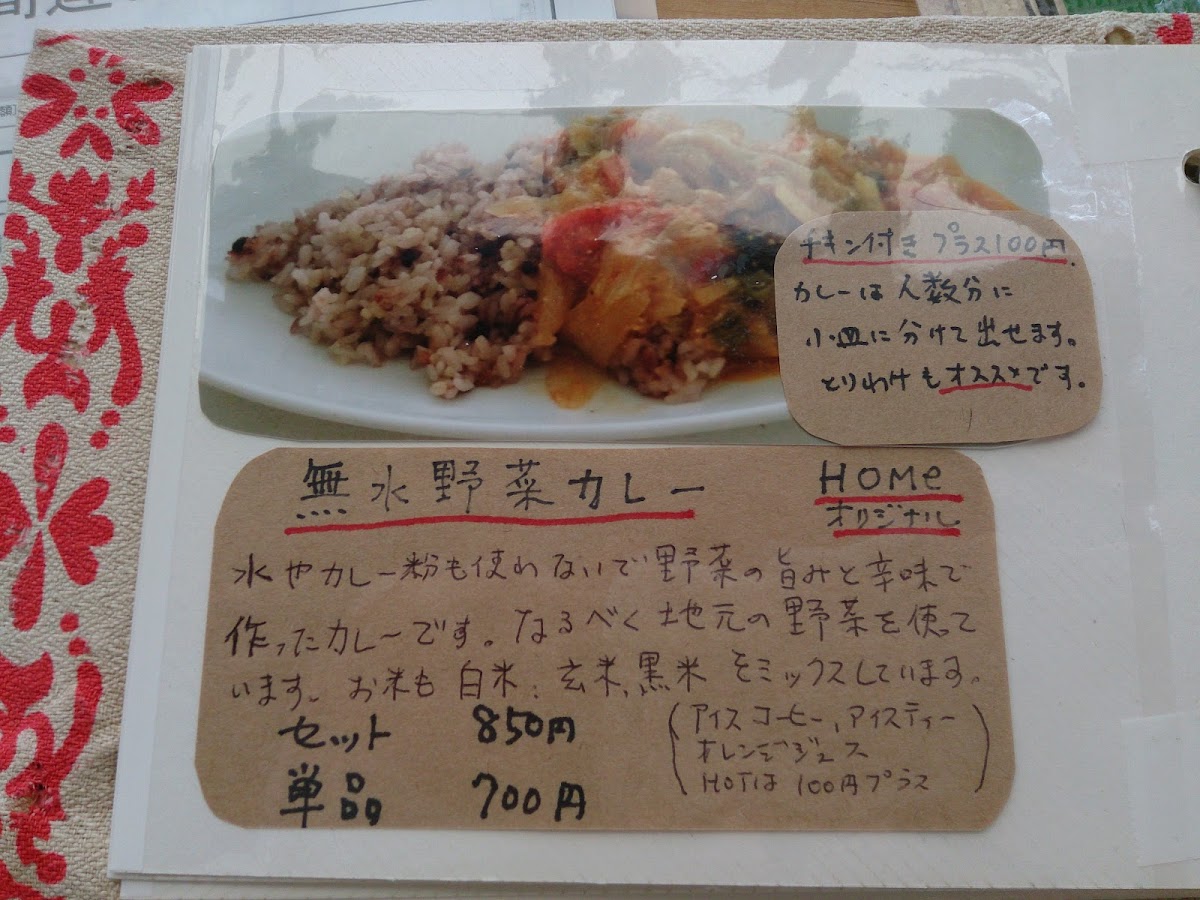 チキン付き プラス100円
カレーは人数分に
小皿に分けて出せます。
とりわけもオススメです。
無水野菜カレー
HOMe
オリジナル
水やカレー粉も使わないで野菜の旨みと辛味で
作ったカレーです。なるべく地元の野菜を使って
います。お米も白米、玄米、黒米をミックスしています。
セット 850円
単品 700円
(アイスコーヒー、アイスティー
オレンジジュース
HOTは100円プラス)